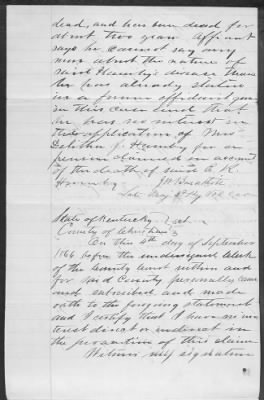 dead, and has been dead for
about two years Affiant
says he cannot say any
more about the nature of
said Hamby's disease than
he has already stated
in a former affidavit given
in this case and that
he has no interest in
the application of Mrs
J. Hamby for a
pension claimed on account
of the death of said A. K.
Hamby
Late Maj 8th Ky Vol Cav
State of Kentucky
County of Christian
On this 5th day of September
1866 before the undersigned Clerk
of the County Court within and
for said County personally came
and subscribed and made
oath to the foregoing statement
and I certify that I have no in
terest direct or indirect in
the prosecution of this claim
Witness my signature